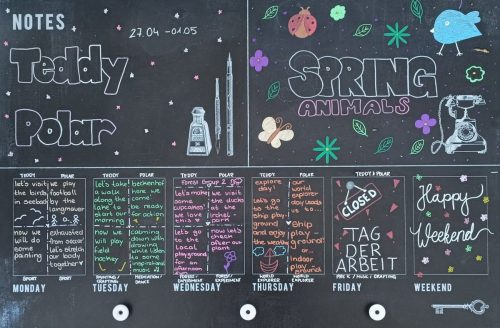 NOTES
27.04 - 01.05
Teddy
Polar
SPRING
ANIMALS
TEDDY
let's visit
the birds
in Seebach
now we
will do
some
painting
SPORT
POLAR
we play
football
by the
exhausted
from soccer
let's stretch
our body
together
SPORT
MONDAY
TEDDY
let's take
a walk
along the
lake to
start our
morning
now we
will play
field
hockey
PAINTING / CRAFTING
POLAR
beckenhof
here we
come!
be ready
for action
calming
down with
drawing
while
listening
to some
music
MEDITATION / DANCE
TUESDAY
TEDDY
POLAR
Forest Group 2
let's make
some
cupcakes
we love
this
let's go
to the
local
playground
for an
afternoon
FOREST / EXPERIMENT
we visit
the ducks
Irchel
now let's
check
after our
plants
FOREST / EXPERIMENT
WEDNESDAY
TEDDY
explore
day!
let's go
to the
ship play-
ground
and enjoy
the weather
WORLD
EXPLORER
POLAR
our world
explorer
day leads
us to...
Ship
play-
ground
or indoor
playground
WORLD
EXPLORER
THURSDAY
TEDDY & POLAR
CLOSED
TAG
DER
ARBEIT
PRE K / MUSIC / CRAFTING
FRIDAY
Happy
Weekend
WEEKEND